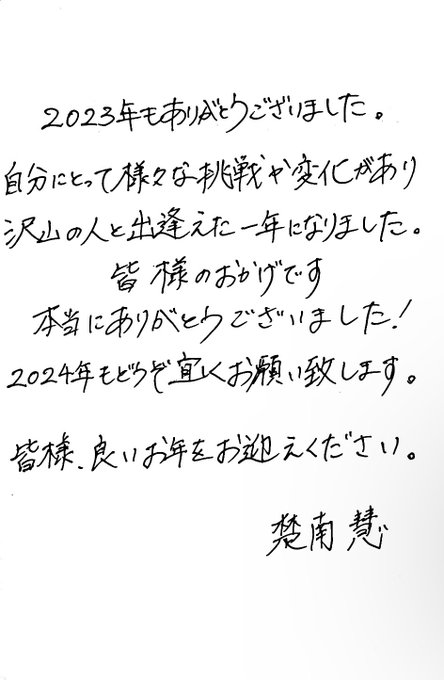 2023年もありがとうございました。
自分にとって様々な挑戦や変化があり
沢山の人と出逢えた一年になりました。
皆様のおかげです
本当にありがとうございました!
2024年もどうぞ宜しくお願い致します。
皆様、良いお年をお迎えください。
楚南慧